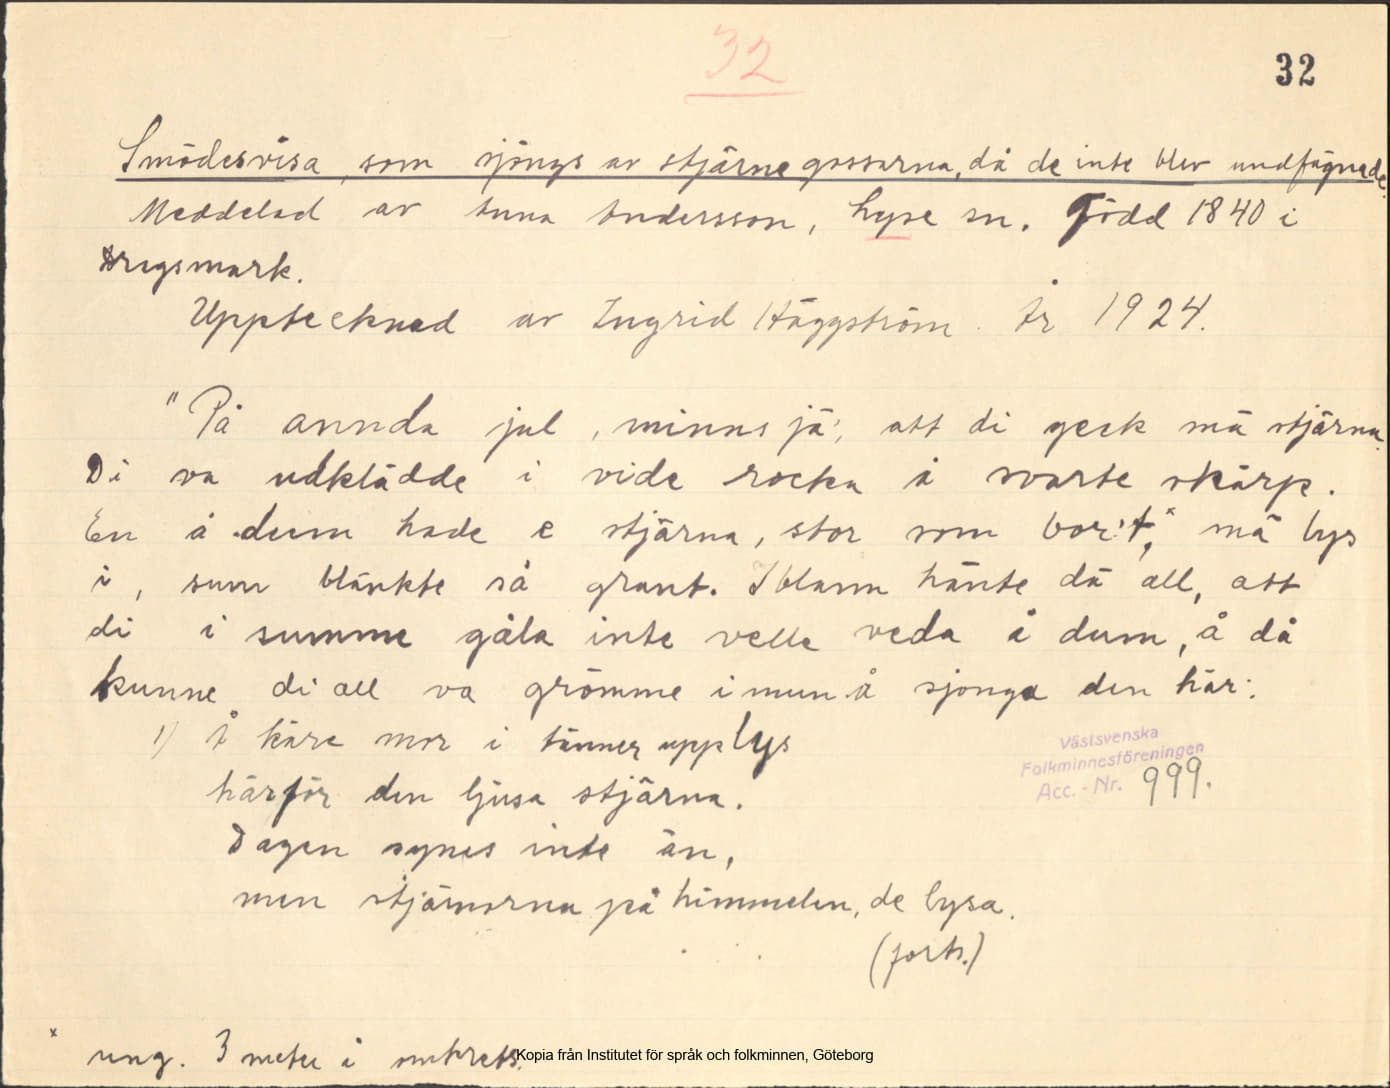 32
32
Smädesvisa, som sjöngs av stjärnegossarna, då de inte blev undfägnade.
Meddelad av Anna Andersson, Lyse sn. Född 1840 i
Krigsmark.
Upptecknad av Ingrid Häggström År 1924.
"På annda jul, minns jä', att di geck mä stjärna.
Di va udklädde i vide rocka å svarte skärp.
En å dum hade e stjärna, stor som bor't,× mä lys
i, sum blänkte så grant. Iblann hänte dä all, att
di i summe gåla inte velle veda å dum, å då
kunne di all va grömme i mun å sjonga den här:
1) Å käre mor i tänner upp lys
härför den ljusa stjärna.
Dagen synes inte än,
men stjärnorna på himmelen, de lysa.
(forts.)
Västsvenska
Folkminnesföreningen
Acc. - Nr. 999.
× ung. 3 meter i omkrets.
Kopia från Institutet för språk och folkminnen, Göteborg